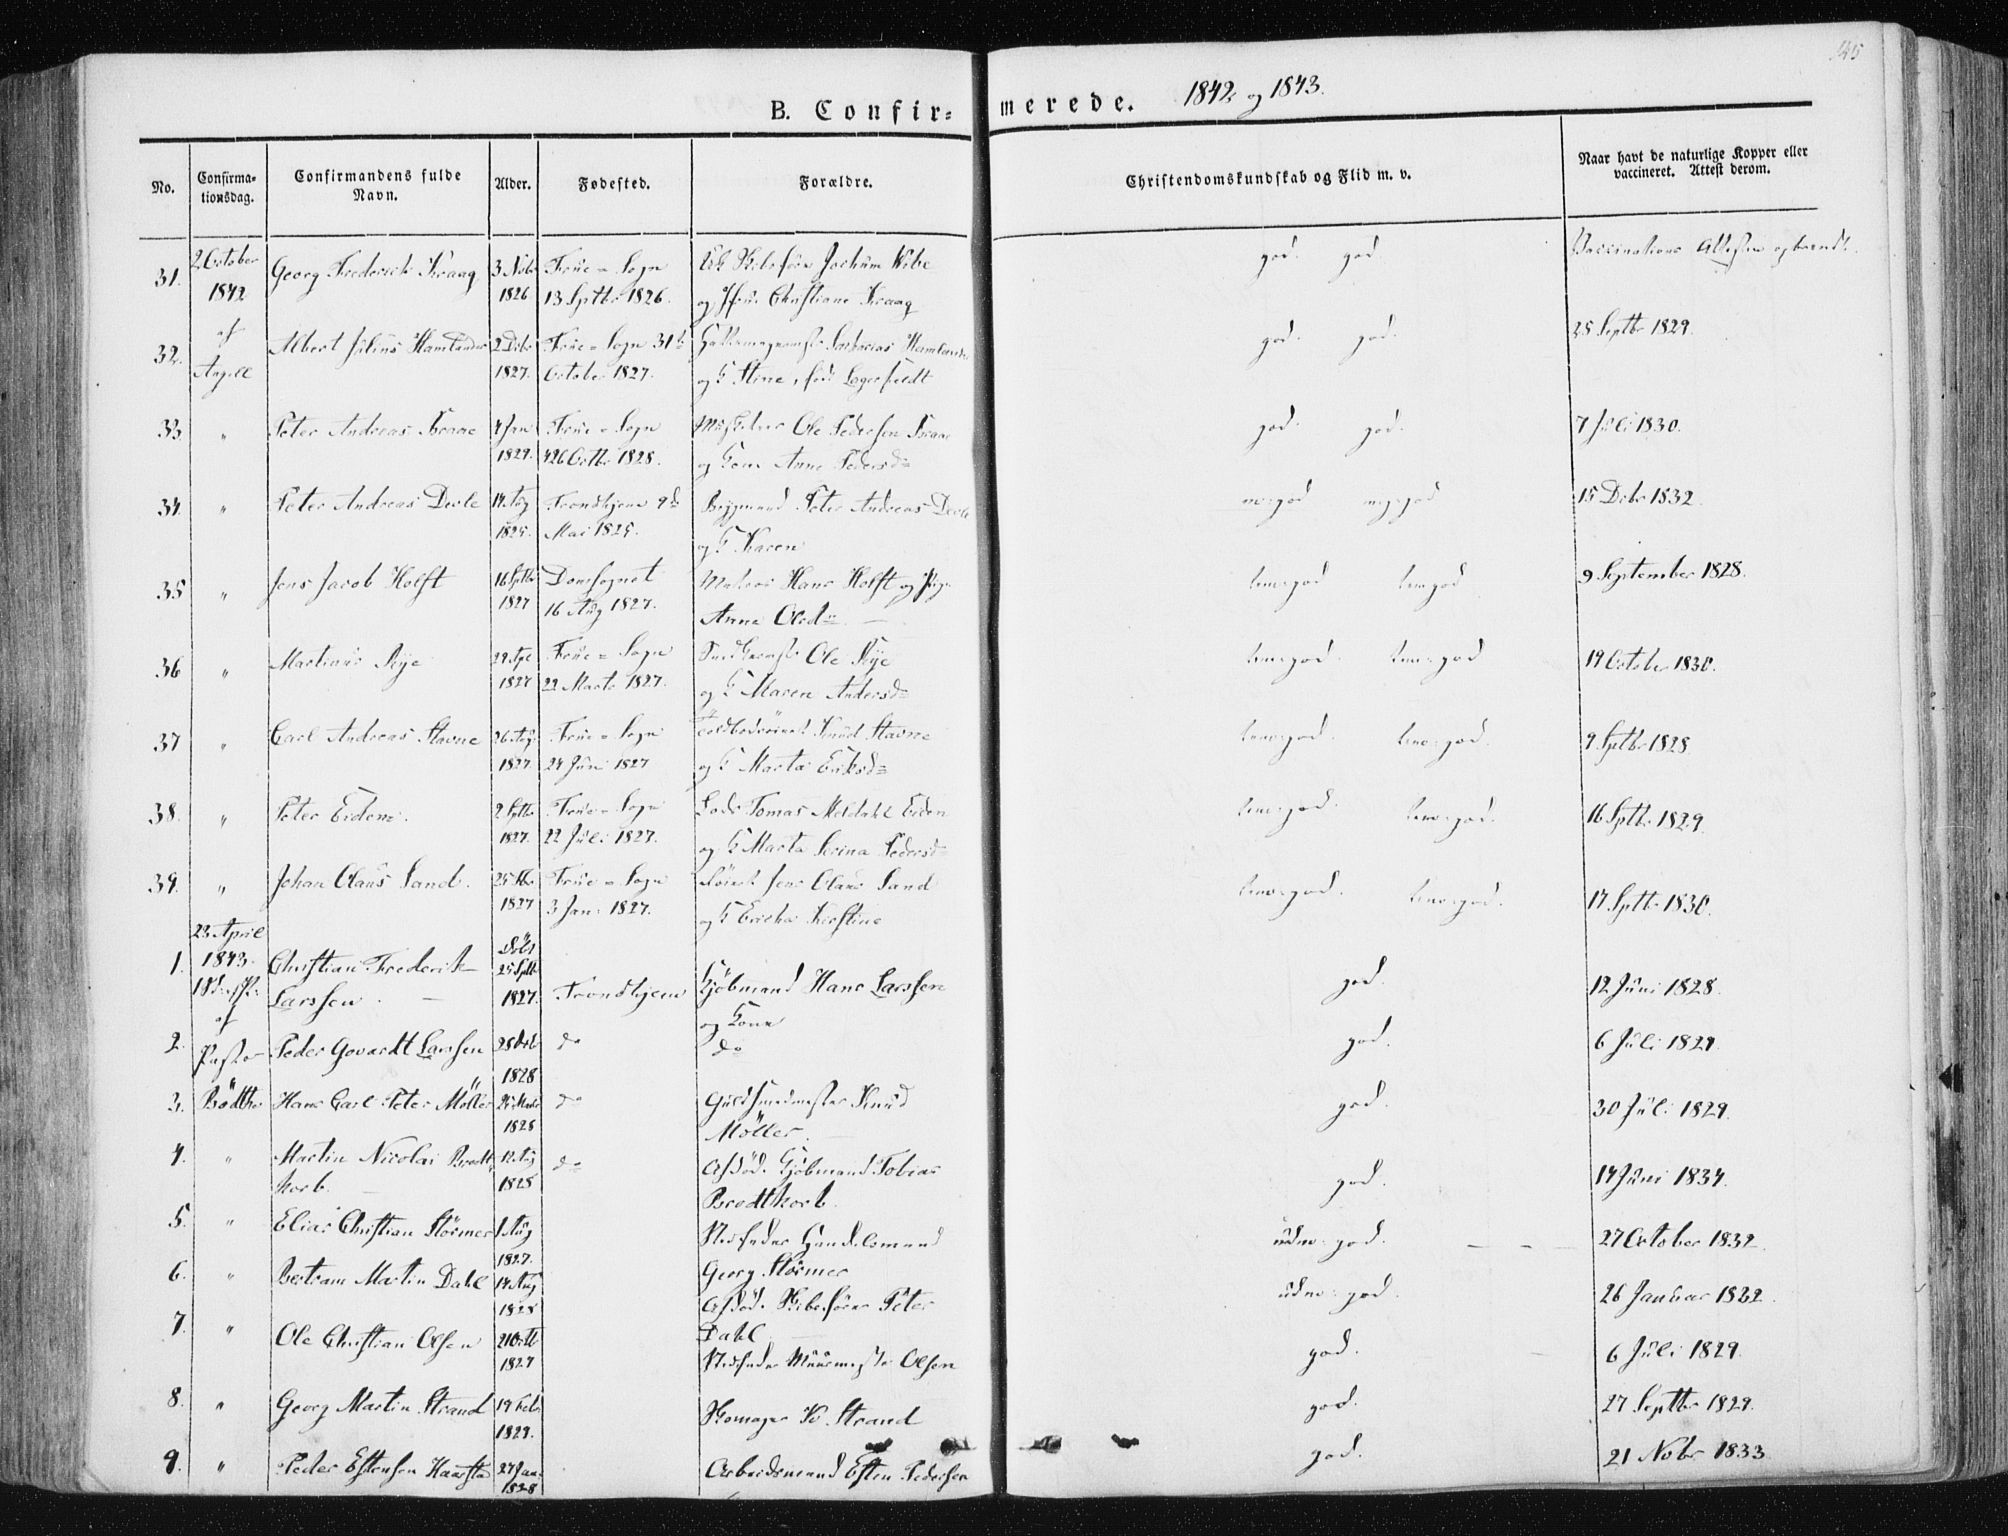 145
B. Confirmerede. 1842 og 1843.
No. Confirmationsdag. Confirmandens fulde Navn. Alder. Fødested. Forældre. Christendomskundskab og Flid m. v. Naar havt de naturlige Kopper eller vaccineret. Attest derom.
31. 2 October 1842 Georg Frederick Kraag 3 Nobr 1826 Frue-Sogn 13 Septbr 1826. Jochum Wibe og Christiane Kraag god. god Vaccinations Attesten opbrændt.
32. af Angell Albert Julius Hamlander 2 Debr 1827. Frue-Sogn 31te October 1827. og Stine, fød Lagerfeldt god. god. 28 Septbr 1829.
33. " Peter Andreas Kraae 4 Jan 1829. Frue-Sogn 26 Octbr 1828. Ole Pedersen Kraae og Kone Anne Pedersd= god. god. 7 Juli 1830.
34. " Peter Andreas Devle 14 Aug 1825. Trondhjem 9de Mai 1825. Bygmand Peter Andreas Devle og K Karen meg: god meg: god 15 Debr 1832.
35 " Jens Jacob Holst 16 Septbr 1827 Domsognet 16 Aug 1827. Hans Holst og Anne Olsd= temo: god temo: god 9 September 1828.
36 " Martinus Rye 1827 Frue-Sogn 22 Marts 1827. Ole Rye og K Maren Andersd= temo: god. temo: god 19 October 1830.
37 " Carl Andreas Stavne 26 Aug 1827. Frue-Sogn 24 Juni 1827 Knud Stavne og K Marta Eriksd= temo: god. temo: god. 9 Septbr 1828.
38. " Peter Eidem. 2 Septbr 1827. Frue-Sogn 22 Juli 1827. Lods Tomas Meldahl Eidem og K Marta Serina Pedersd= temo: god. temo: god. 16 Septbr 1829.
39. " Johan Olaus Sand. 1827 Frue-Sogn 3 Jan: 1827. Jens Olaus Sand og K Ericka Kirstine temo: god. temo: god. 17 Septbr 1830.
1. 23 April 1843. Christian Frederik Larssen. Døbt 25 Septb 1827. Trondhjem Kjøbmand Hans Larssen og Kone god. 12 Juni 1828.
2. af Pastor Peder Govardt Larssen 1828 do do god. 6 Juli 1829.
3. Bødtker Hans Carl Peter Møller 1828 do Guldsmedmester Knud Møller. god. 30 Juli 1829.
4. " Martin Nicolai Brodtkorb. 12 Aug 1828 do Afdød. Kjøbmand Tobias Brodtkorb. god. 14 Juni 1834.
5. " Elias Christian Størmer 1 Aug 1827. Stedfader Handelsmand Georg Størmer udm: god. 27 October 1832.
6. " Bertram Martin Dahl 14 Aug 1828 Afdød. Skibsfører Peter Dahl udm: god. 26 Januar 1832.
7. " Ole Christian Olsen 21 Octb 1827 Stedfader Muurmester Olsen god. 6 Juli 1829.
8. " Georg Martin Strand 19 Feb. 1829. Skomager Strand god. 27 Septbr 1829.
9. " Peder Estensen Haarstad 27 Jan. 1828 Arbeidsmand Esten Pedersen god. 21 Nobr 1833